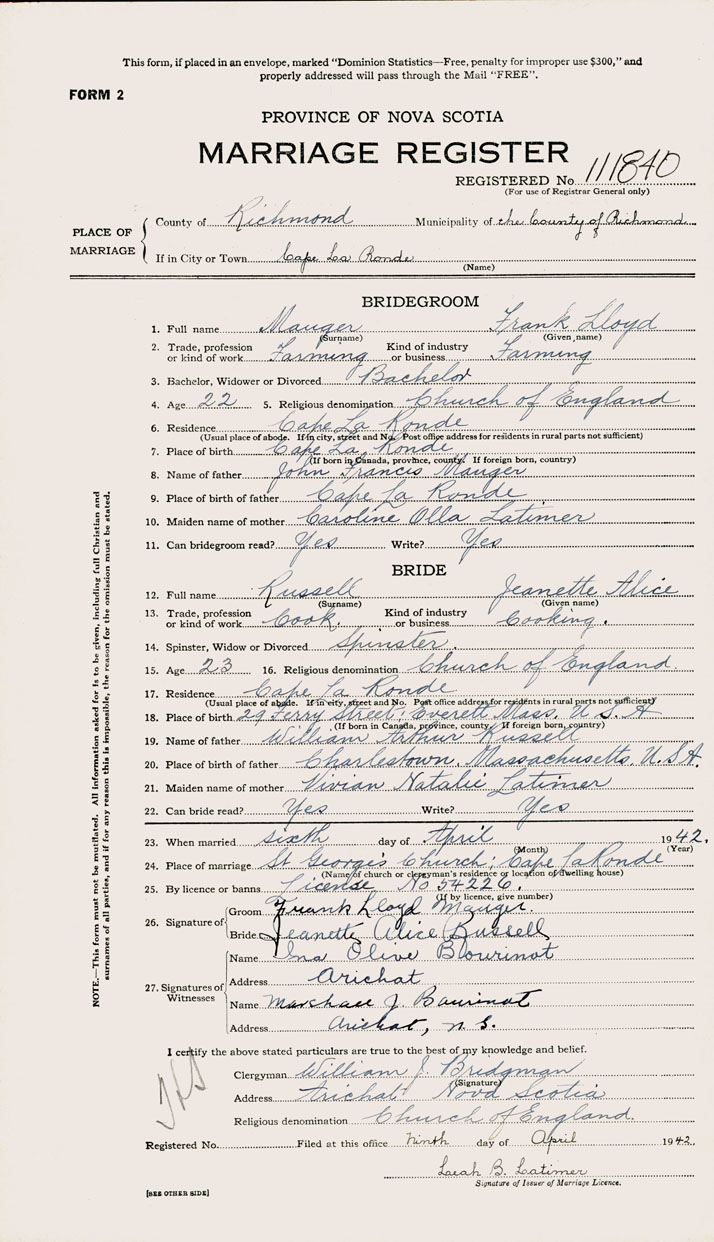 This form, if placed in an envelope, marked "Dominion Statistics—Free, penalty for improper use $300," and
properly addressed will pass through the Mail "FREE".
FORM 2
PROVINCE OF NOVA SCOTIA
MARRIAGE REGISTER
REGISTERED No. 111840
(For use of Registrar General only)
PLACE OF MARRIAGE
County of Richmond Municipality of the County of Richmond
If in City or Town Cape La Ronde
(Name)
BRIDEGROOM
1. Full name Mauger Frank Lloyd
(Surname) (Given name)
2. Trade, profession or kind of work Farming Kind of industry or business Farming
3. Bachelor, Widower or Divorced Bachelor
4. Age 22 5. Religious denomination Church of England
6. Residence Cape La Ronde
(Usual place of abode. If in city, street and No. Post office address for residents in rural parts not sufficient)
7. Place of birth Cape La Ronde
(If born in Canada, province, county. If foreign born, country)
8. Name of father John Francis Mauger
9. Place of birth of father Cape La Ronde
10. Maiden name of mother Caroline Olla Latimer
11. Can bridegroom read? Yes Write? Yes
BRIDE
12. Full name Russell Jeanette Alice
(Surname) (Given name)
13. Trade, profession or kind of work Cook. Kind of industry or business Cooking.
14. Spinster, Widow or Divorced Spinster.
15. Age 23 16. Religious denomination Church of England.
17. Residence Cape la Ronde
(Usual place of abode. If in city, street and No. Post office address for residents in rural parts not sufficient)
18. Place of birth 29 Ferry Street, Everett Mass. U.S.A
(If born in Canada, province, county. If foreign born, country)
19. Name of father William Arthur Russell
20. Place of birth of father Charlestown, Massachusetts. U.S.A.
21. Maiden name of mother Vivian Natalie Latimer
22. Can bride read? Yes Write? Yes
23. When married sixth day of April 1942.
(Month) (Year)
24. Place of marriage St George's Church; Cape la Ronde
(Name of church or clergyman's residence or location of dwelling house)
25. By licence or banns License No 54226.
(If by licence, give number)
26. Signature of
Groom Frank Lloyd Mauger.
Bride Jeanette Alice Russell
27. Signatures of Witnesses
Name Ina Olive Bourinot
Address Arichat
Name Marshall J. Bourinot
Address Arichat, N.S.
I certify the above stated particulars are true to the best of my knowledge and belief.
Clergyman William J. Bridgman
(Signature)
Address Arichat Nova Scotia
Religious denomination Church of England.
Registered No. Filed at this office Ninth day of April 1942
Leah B. Latimer
Signature of Issuer of Marriage Licence.
[SEE OTHER SIDE]
NOTE.—This form must not be mutilated. All information asked for is to be given, including full Christian and
surnames of all parties, and if for any reason this is impossible, the reason for the omission must be stated.